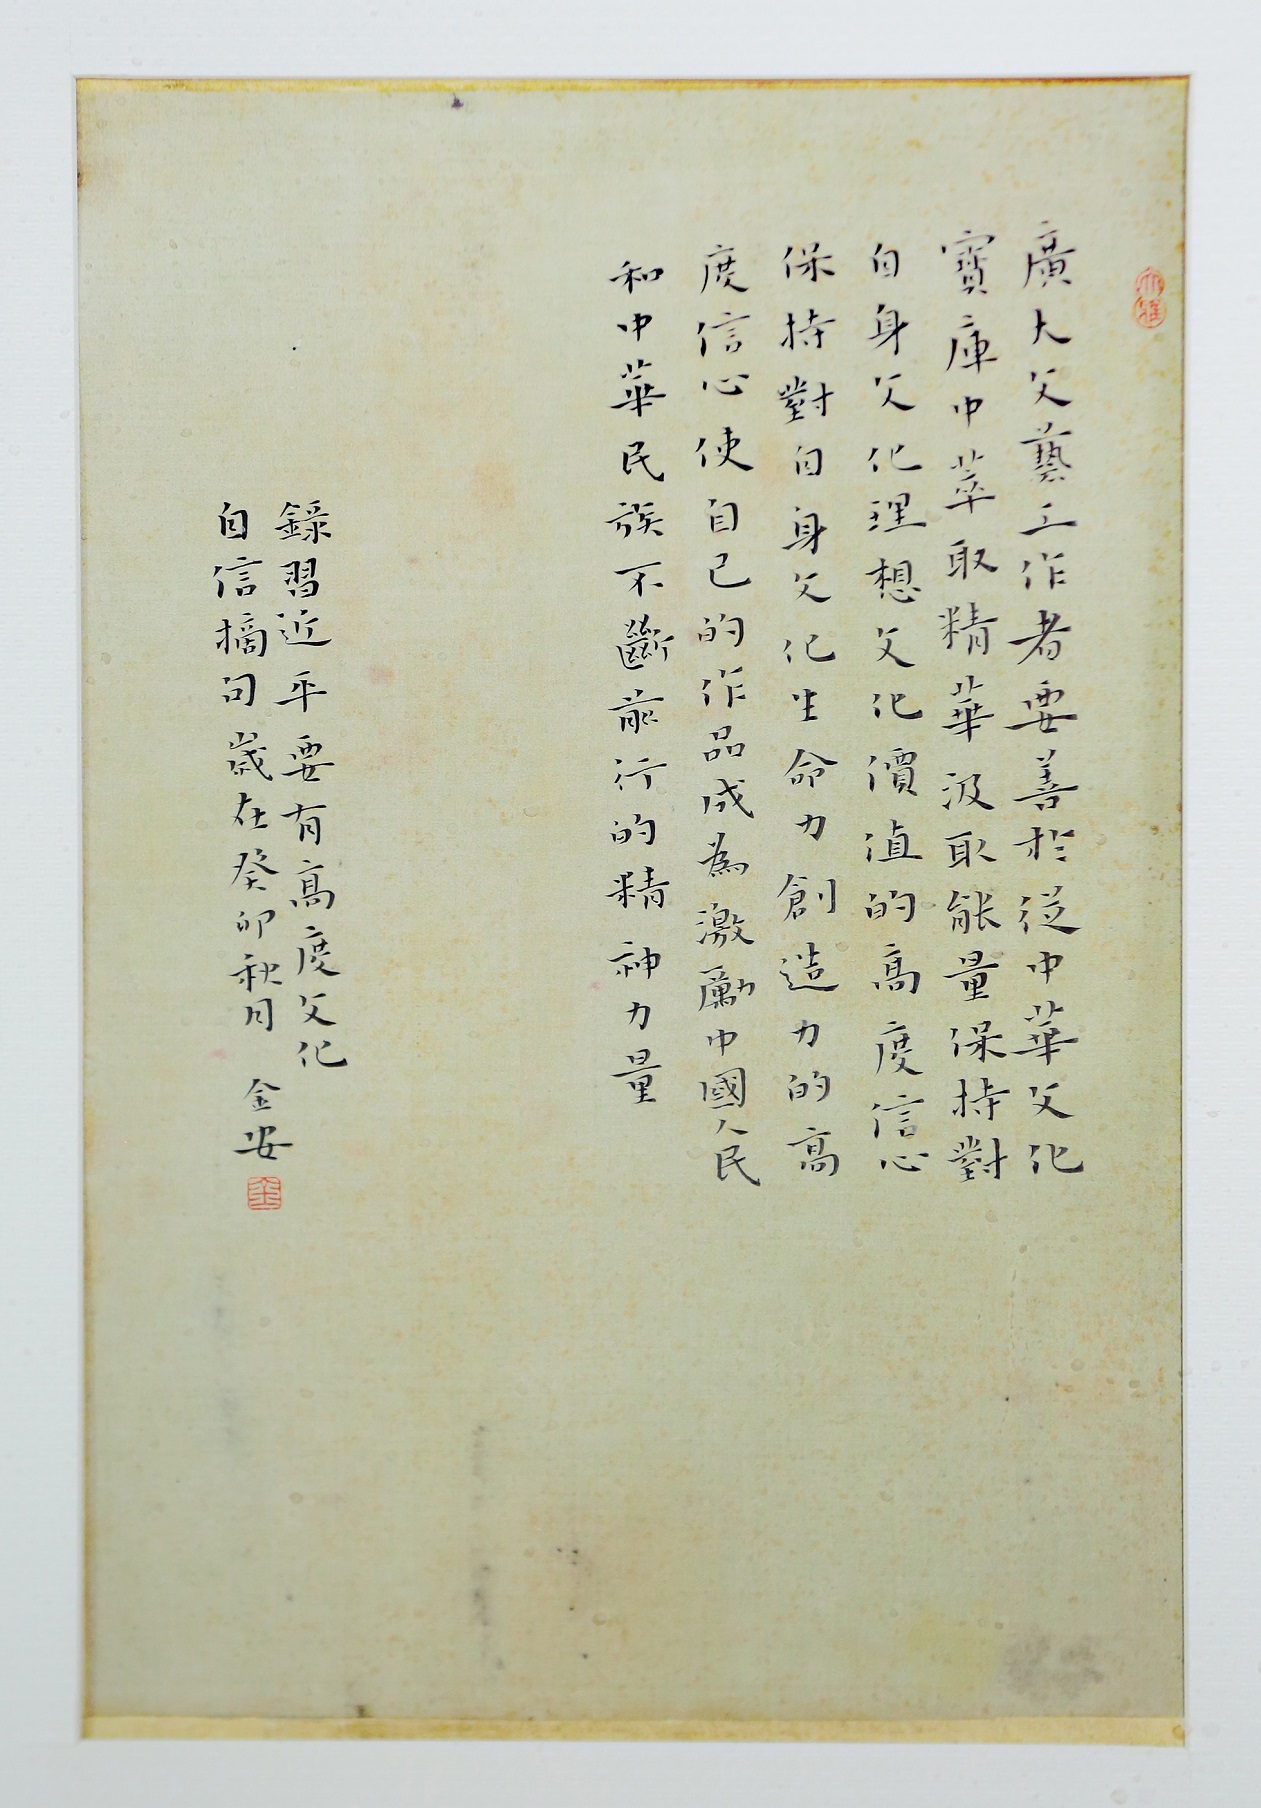 大雅
廣大文藝工作者要善於從中華文化
寶庫中萃取精華汲取能量保持對
自身文化理想文化價值的高度信心
保持對自身文化生命力創造力的高
度信心使自己的作品成為激勵中國人民
和中華民族不斷前行的精神力量
錄習近平要有高度文化
自信摘句歲在癸卯秋月 金安
金